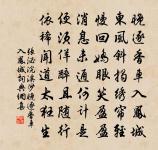 晚逐香車入鳳城
東風斜揭繡簾輕
慢回嬌眼笑盈盈
消息未通何計是
便須佯醉且隨行
依稀聞道太狂生
張泌浣溪沙晚逐香車
入鳳城詞